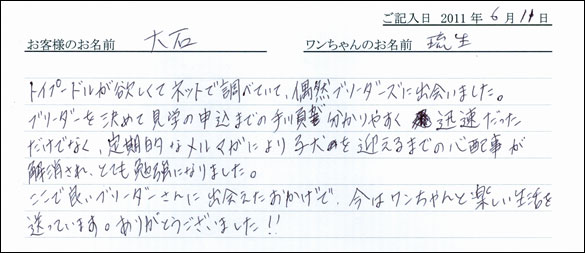 ご記入日 2011年6月11日
お客様のお名前 大石 ワンちゃんのお名前 琉生
トイプードルが欲しくてネットで調べていて、偶然ブリーダーズに出会いました。
ブリーダーを決めて見学の申込までの手順が分かりやすく 迅速だった
だけでなく、定期的なメルマガにより子犬を迎えるまでの心配事が
解消され、とても勉強になりました。
ここで良いブリーダーさんに出会えたおかげで、今はワンちゃんと楽しい生活を
送っています。ありがとうございました!!